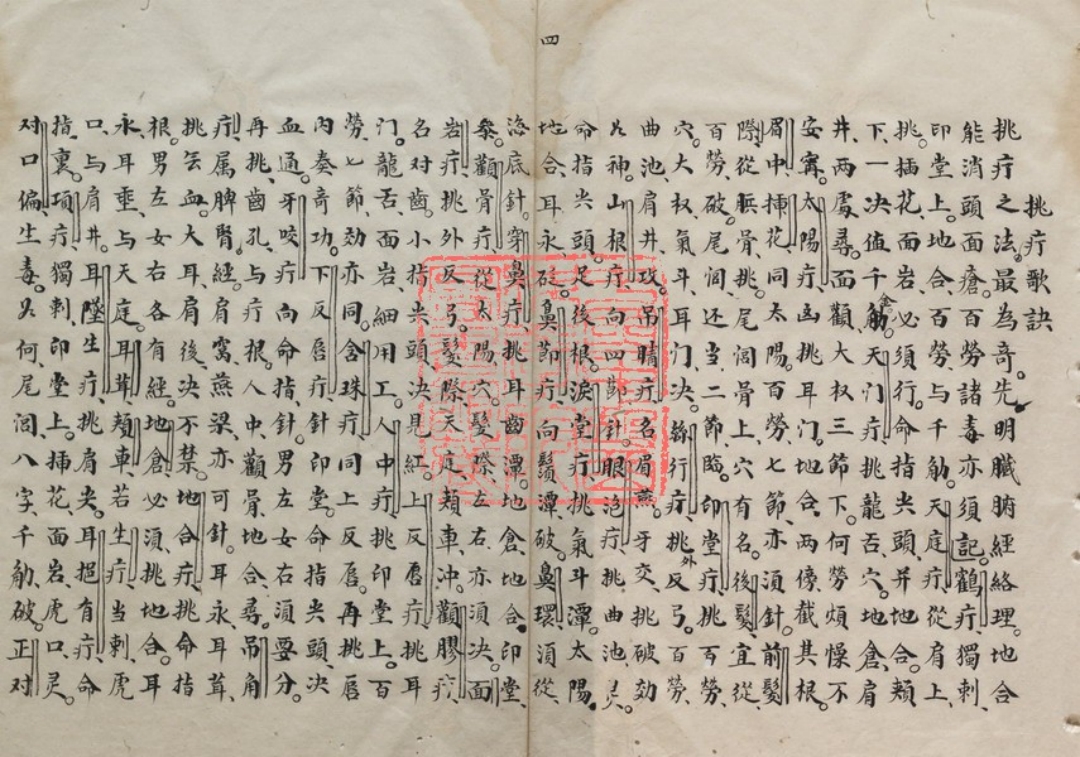 四
挑疔歌訣
挑疔之法最為奇先明臟腑經絡理地合
能消頭面瘡百勞諸毒亦須記鶴疔獨刺
印堂上地合百勞与千觔天庭疔從肩上
挑插花面岩必須行命指尖頭并地合頰
下一决值千金觔天门疔挑龍舌穴地倉肩
井两處尋面顴大权三節下何勞煩惱不
安寗太陽疔凶挑耳门地合两傍截其根
眉中揷花同太陽百勞七節亦須針前髮
際從脈骨挑尾闾骨上穴有名後髮宜從
百勞破尾闾还当二節臨印堂疔挑百勞
穴大权氣斗耳门决綠行疔挑外反弓百勞
曲池肩井攻吊睛疔名眉燕牙交挑破効
如神山根疔向四節針眼泡疔挑曲池灵
命指尖頭足後根淚堂疔挑氣斗潭太陽
地合耳永砭鼻節疔向鬚潭破鼻環須從
海底針穿鼻疔挑耳齒潭地倉地合印堂
叅顴骨疔從太陽穴髮際左右亦須决面
岩疔挑外反弓髮際天庭頰車冲顴膠疔
名对齒小指尖頭决見紅上反唇疔挑耳
门龍舌面岩細用工人中疔挑印堂上百
勞七節効亦同含珠疔同上反唇再挑唇
内奏奇功下反唇疔針印堂命指尖頭决
血通牙咬疔向命指針男左女右須要分
再挑齒孔与疔根人中顴骨地合尋吊角
疔属脾腎經肩窩燕梁亦可針耳永耳茸
挑云血大耳肩後决不禁地合疔挑命指
根男左女右各有經地倉必須挑地合耳
永耳垂与天庭耳茸頰車若生疔当刺虎
口与肩井耳墜生疔挑肩尖耳挹有疔命
指裏項疔獨刺印堂上揷花面岩虎口灵
对口偏生毒如何尾闾八字千觔破正对